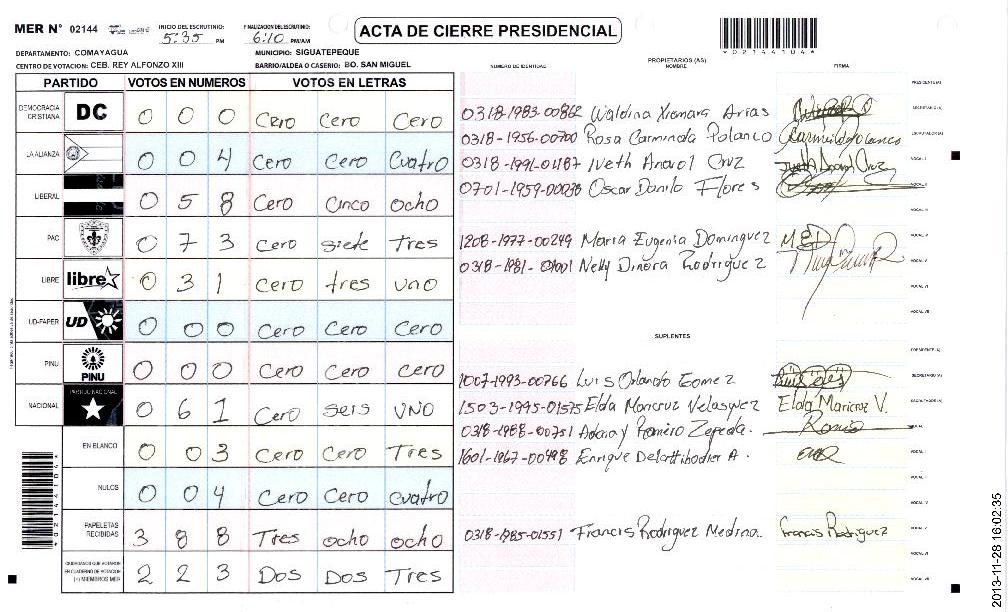 MER N° 02144 INICIO DEL ESCRUTINIO: 5:35 PM FINALIZACION DEL ESCRUTINIO: 6:10 PM/AM ACTA DE CIERRE PRESIDENCIAL
*02144104*
DEPARTAMENTO: COMAYAGUA MUNICIPIO: SIGUATEPEQUE
CENTRO DE VOTACION: CEB. REY ALFONZO XIII BARRIO/ALDEA O CASERIO: BO. SAN MIGUEL
PARTIDO VOTOS EN NUMEROS VOTOS EN LETRAS
DEMOCRACIA CRISTIANA DC 0 0 0 Cero Cero Cero
LA ALIANZA 0 0 4 Cero Cero Cuatro
LIBERAL 0 5 8 Cero Cinco ocho
PAC 0 7 3 Cero siete tres
LIBRE libre 0 3 1 Cero tres uno
UD-FAPER UD 0 0 0 Cero Cero Cero
PINU PINU 0 0 0 Cero Cero Cero
NACIONAL PARTIDO NACIONAL 0 6 1 Cero seis UNO
EN BLANCO 0 0 3 Cero Cero Tres
NULOS 0 0 4 Cero Cero cuatro
PAPELETAS RECIBIDAS 3 8 8 Tres ocho ocho
CIUDADANOS QUE VOTARON EN CUADERNO DE VOTACION (+) MIEMBROS MER 2 2 3 Dos Dos Tres
NUMERO DE IDENTIDAD PROPIETARIOS (AS) NOMBRE FIRMA
PRESIDENTE(A)
0318-1983-00862 Waldina Xiomara Arias SECRETARIO(A)
0318-1956-00700 Rosa Carminda Polanco ESCRUTADOR(A)
0318-1991-01187 Iveth Anarol Cruz VOCAL I
0701-1959-00038 Oscar Danilo Flores VOCAL II
VOCAL III
1208-1977-00249 Maria Eugenia Dominguez VOCAL IV
0318-1981-01001 Nelly Dinora Rodriguez VOCAL V
VOCAL VI
VOCAL VII
SUPLENTES
PRESIDENTE(A)
1007-1993-00766 Luis Orlando Gomez SECRETARIO(A)
1503-1995-01575 Elda Maricruz Velasquez Elda Maricruz V. ESCRUTADOR(A)
0318-1988-00751 Romero Zepeda.
1601-1967-00498 Enrique A. VOCAL I
VOCAL IV
0318-1985-01551 Francis Rodriguez Medina. Francis Rodriguez VOCAL V
VOCAL VI
VOCAL VII
*02144104*
2013-11-28 16:02:35